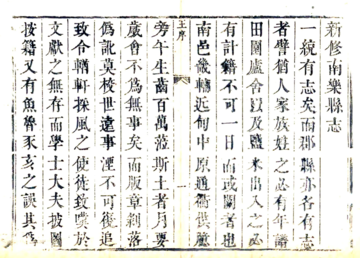 新修南樂縣志
一統有志矣而郡縣亦各有志
者譬猶人家族姓之必有年譜
田園廬舍以及鹽米出入之必
有計籍不可一日而或闕者也
南邑畿輔近甸中原通衢供應
王序
旁午生齒百萬蒞斯土者月要
歲會不爲無事矣而版章剝落
僞訛莫校世遠事湮不可復追
致令輶軒採風之使徒致嘆於
文獻之無存而學士大夫披圖
按籍又有魚魯豕亥之誤其爲